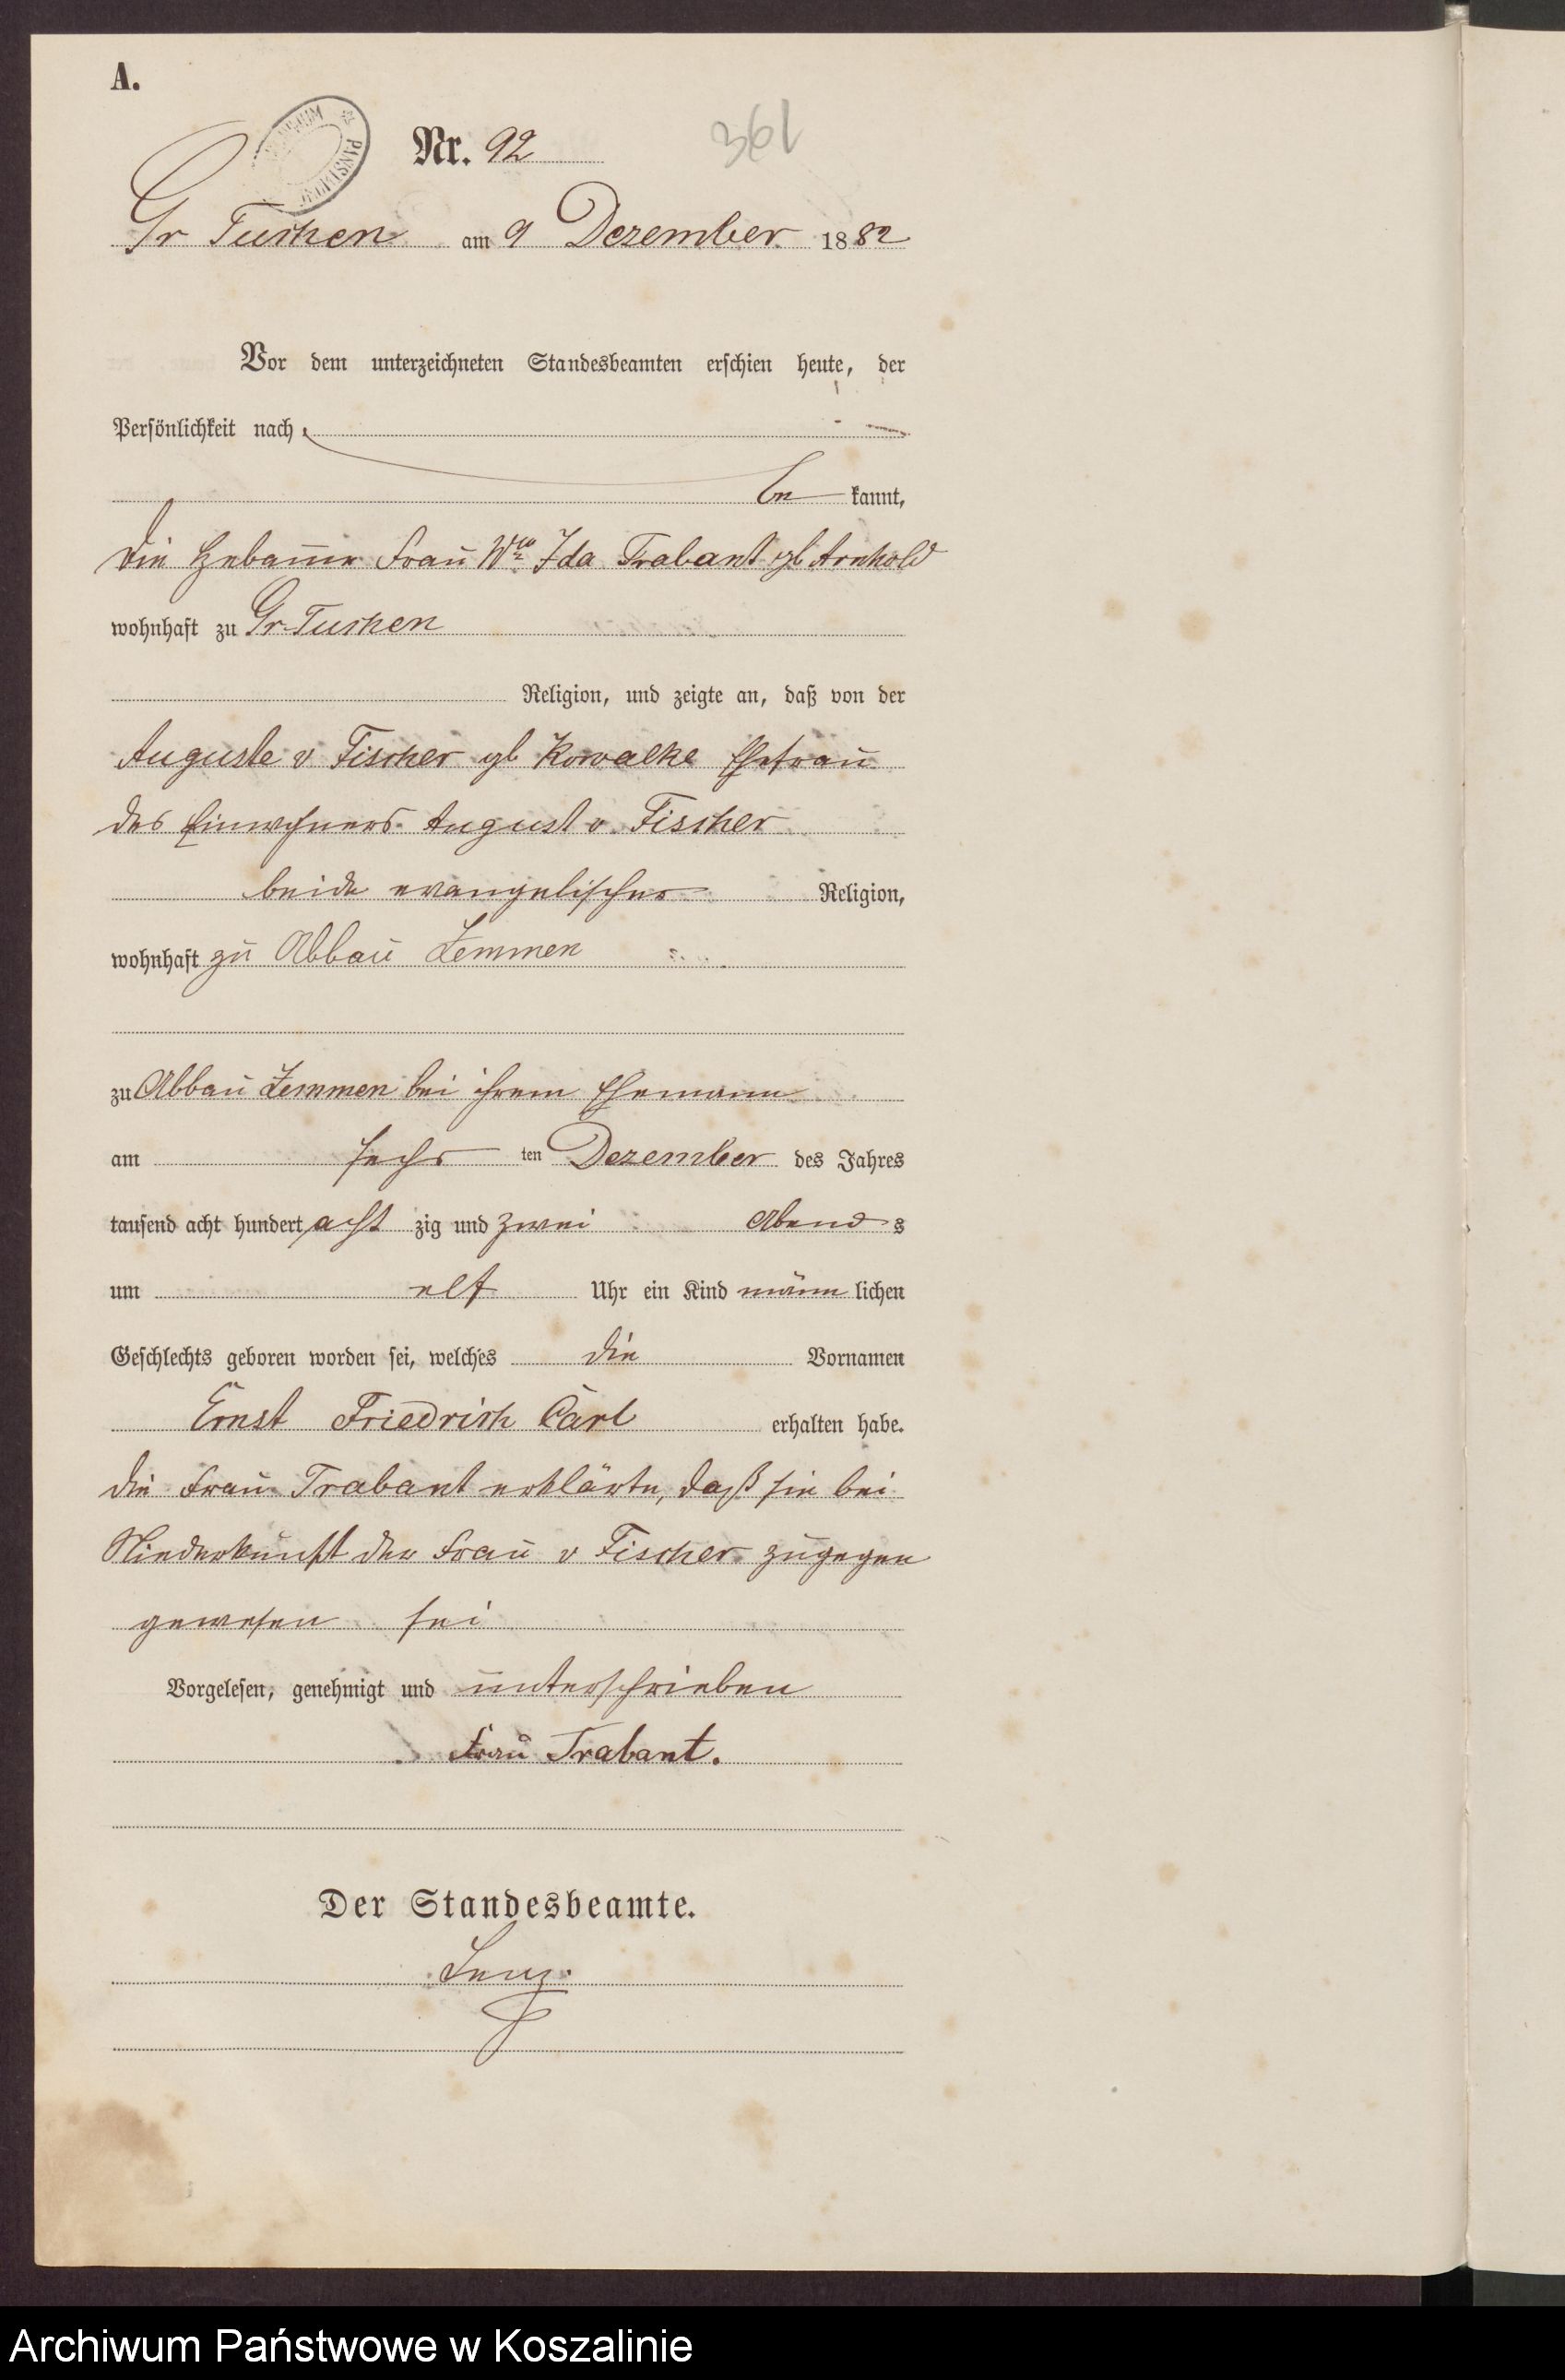 A.
Nr. 92
361
Gr Tuchen am 9 Dezember 1882
Vor dem unterzeichneten Standesbeamten erschien heute, der
Persönlichkeit nach
be kannt,
die Hebamme Frau Wwe Ida Trabant gb Arnhold
wohnhaft zu Gr. Tuchen
Religion, und zeigte an, daß von der
Auguste v Fischer gb Kowalke Ehefrau
des Einwohners August v. Fischer
beide evangelischer Religion,
wohnhaft zu Abbau Zemmen
zu Abbau Zemmen bei ihrem Ehemann
am sechs ten Dezember des Jahres
tausend acht hundert acht zig und zwei Abend s
um elf Uhr ein Kind männ lichen
Geschlechts geboren worden sei, welches die Vornamen
Ernst Friedrich Carl erhalten habe.
die Frau Trabant erklärte, daß sie bei
Niederkunft der Frau v Fischer zugegen
gewesen sei
Vorgelesen, genehmigt und unterschrieben
Frau Trabant.
Der Standesbeamte.
Lenz.
Archiwum Państwowe w Koszalinie